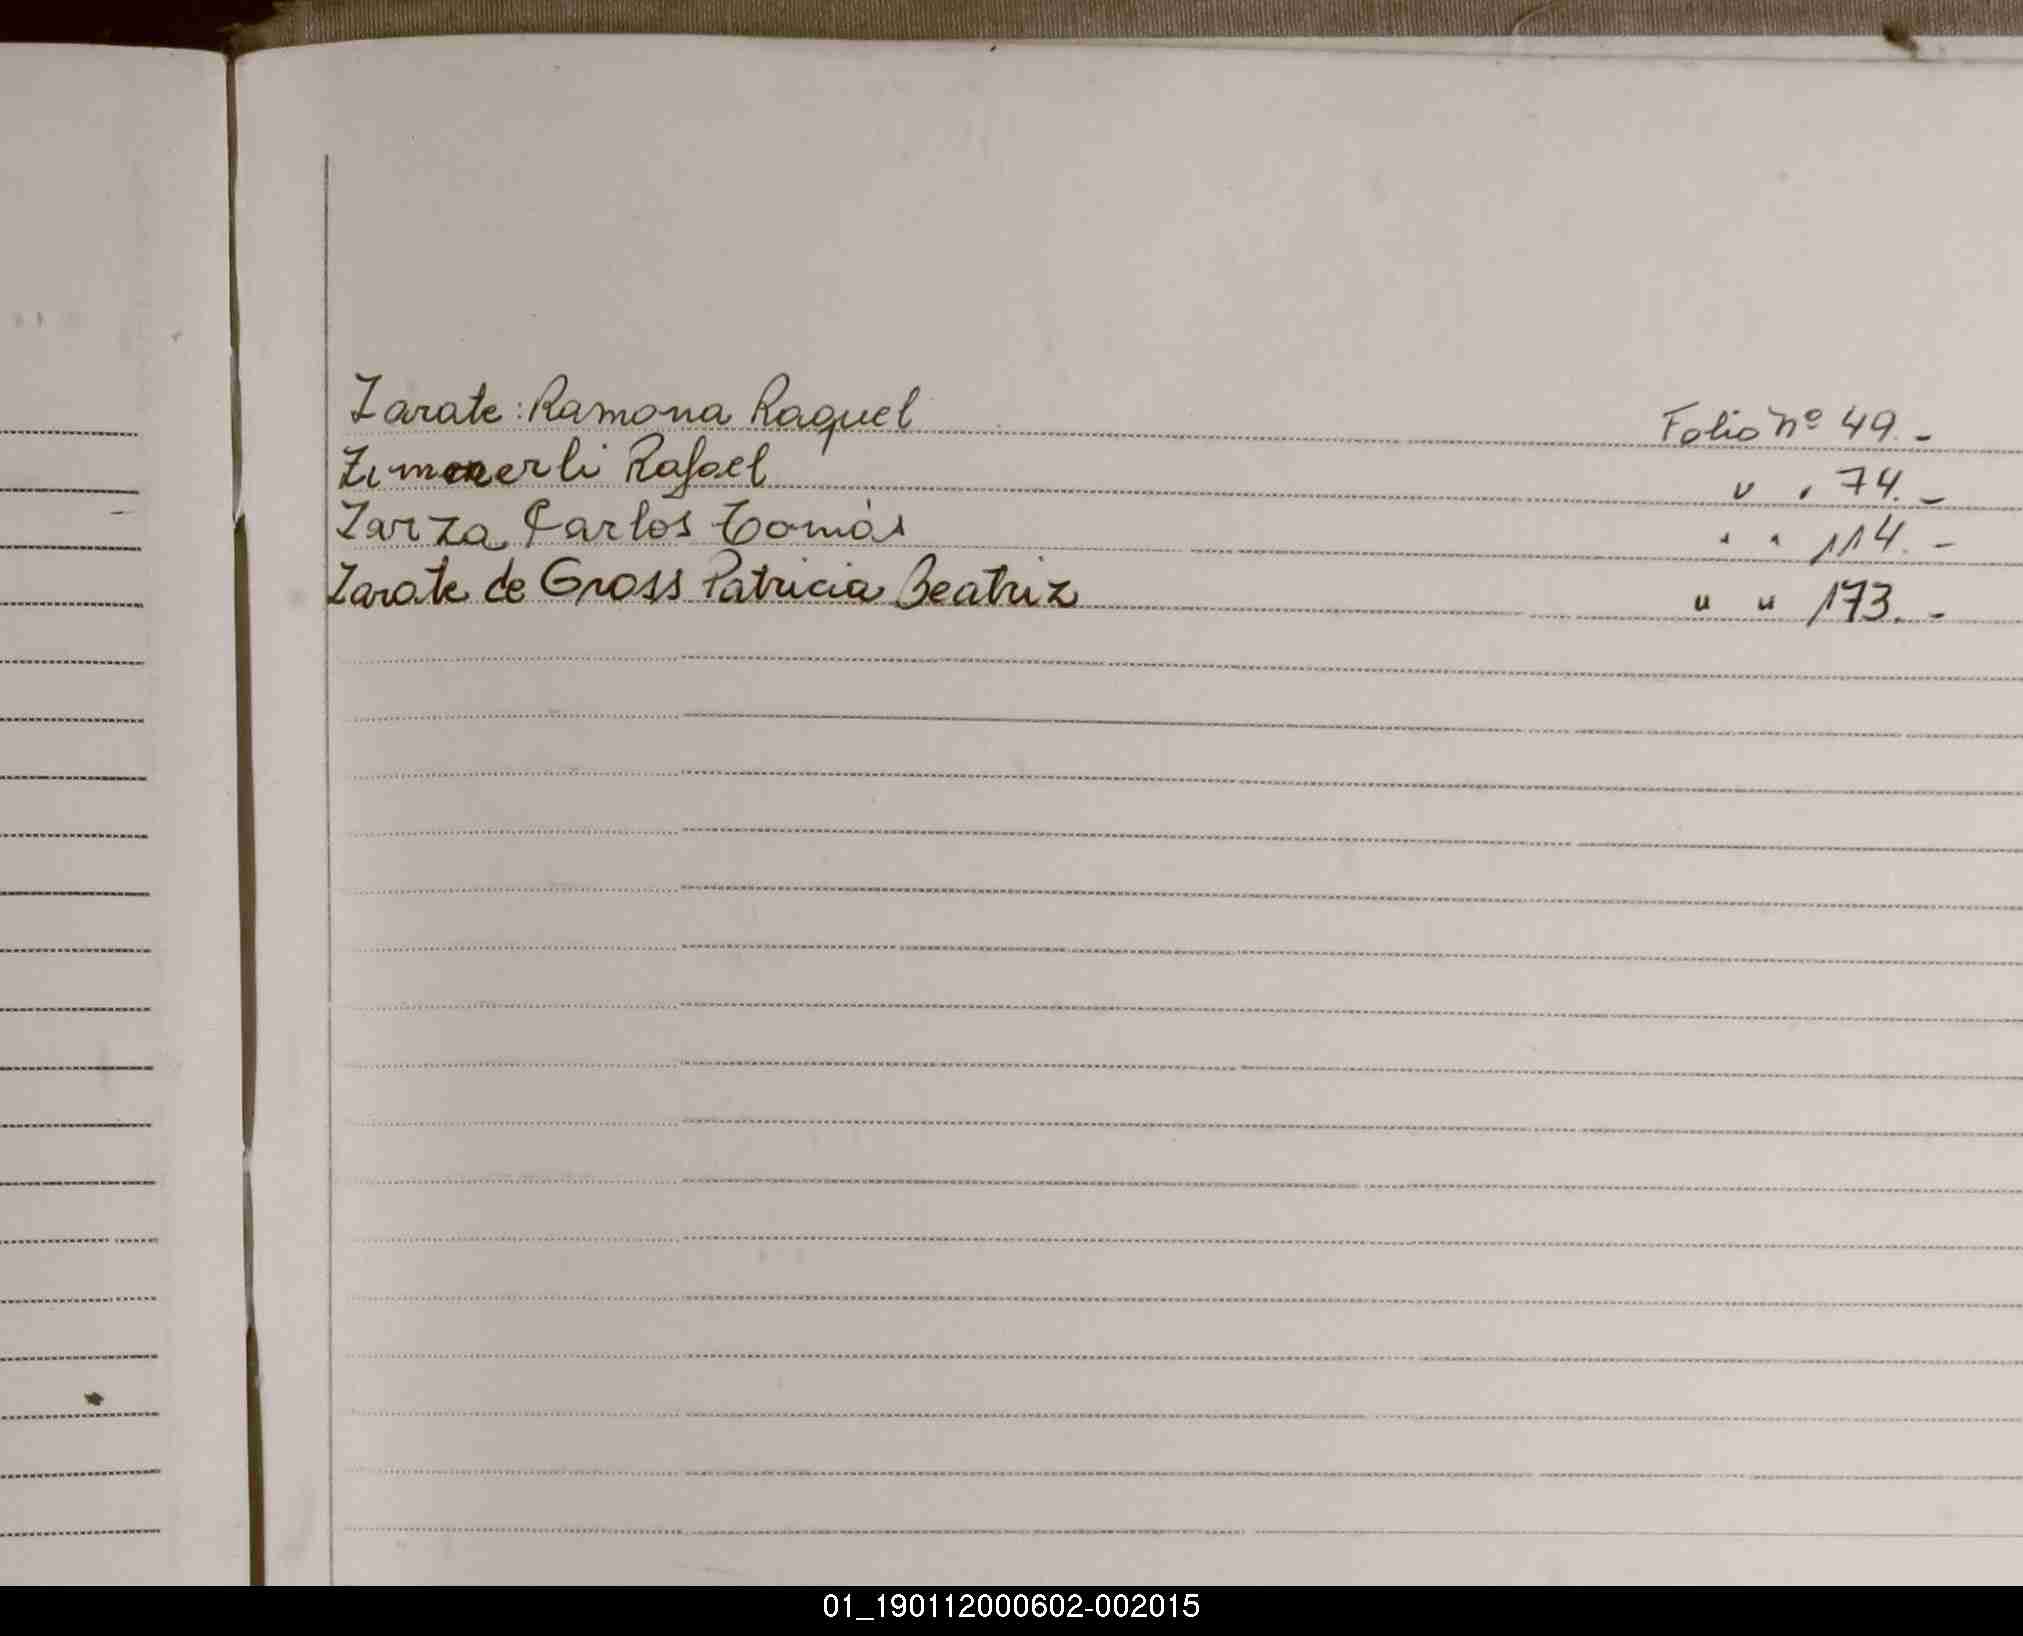 Zarate: Ramona Raquel Folio Nº 49.-
Rafael " " 74.-
Zarza Carlos Tomás " " 114.-
Zarate de Gross Patricia Beatriz " " 173.-
01_190112000602-002015